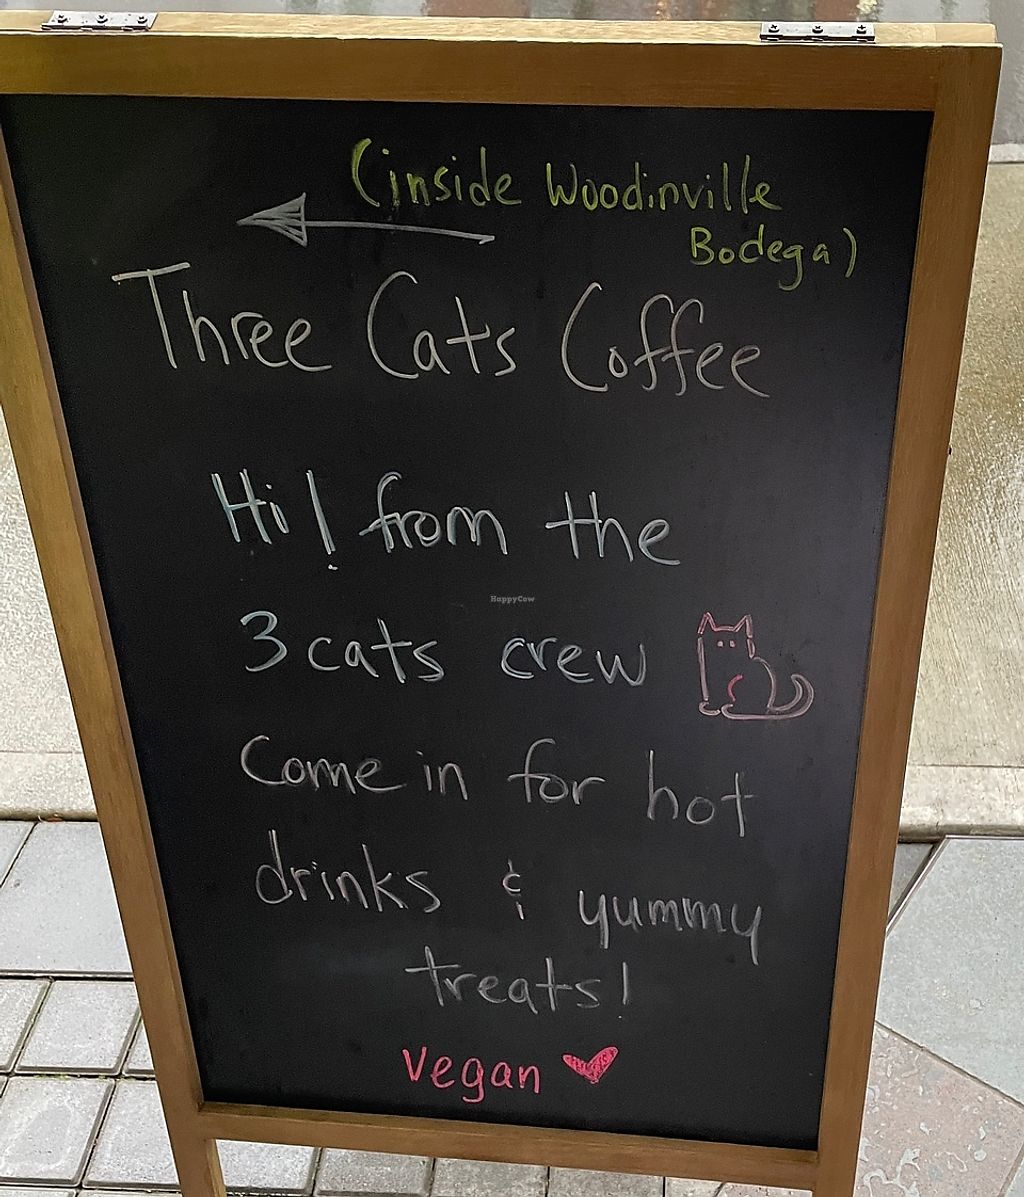 (inside Woodinville
Bodega)
Three Cats Coffee
Hi! from the
HappyCow
3 cats crew
Come in for hot
drinks & yummy
treats!
Vegan